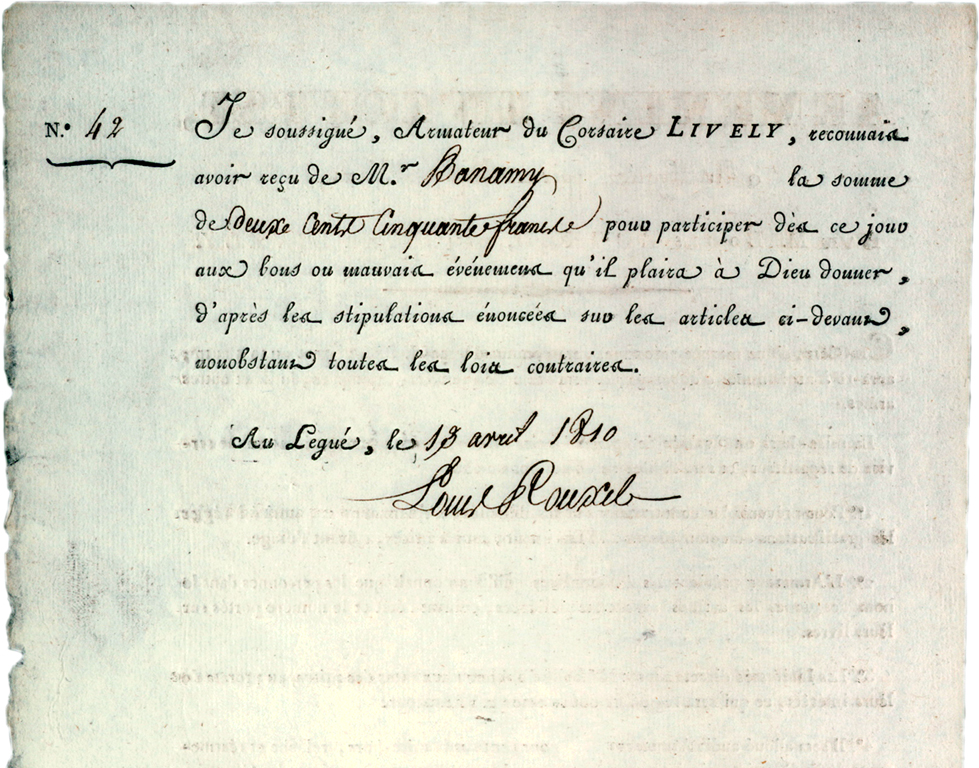 N.º 42
Je soussigné, Armateur du Corsaire LIVELY, reconnais
avoir reçu de M.r Banamy la somme
de deuxe Cents Cinquante francs pour participer dès ce jour
aux bons ou mauvais événemens qu'il plaira à Dieu donner,
d'après les stipulations énoncées sur les articles ci-devant,
nonobstant toutes les lois contraires.
Au Legué, le 13 avril 1810
Louis Rouxel